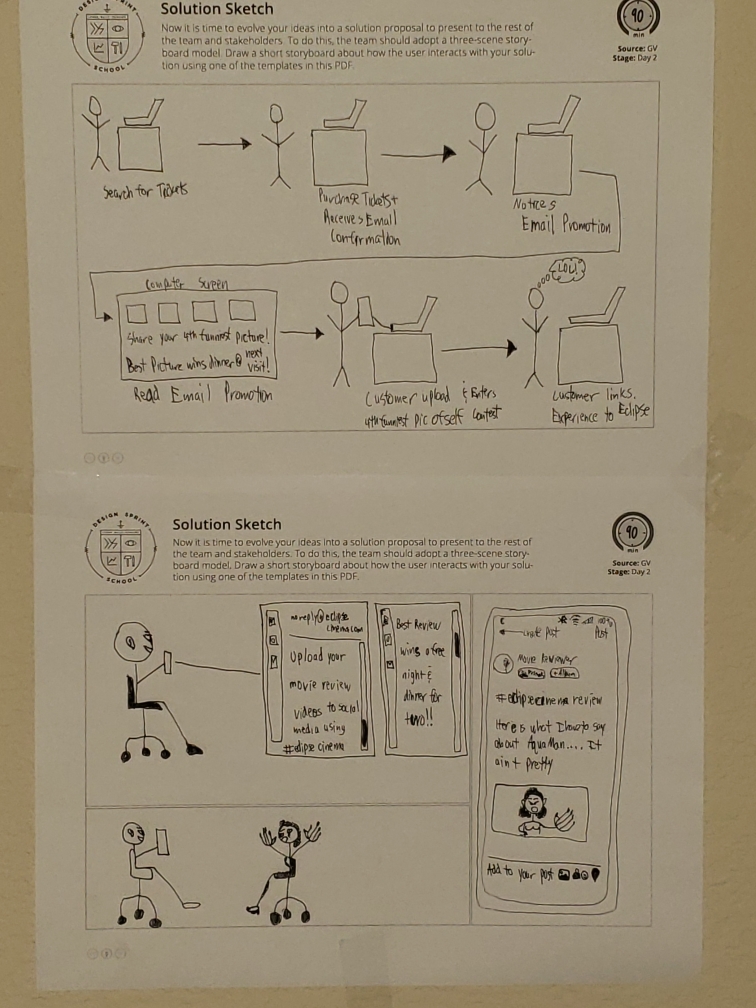 DESIGN SPRINT
SCHOOL
Solution Sketch
Now it is time to evolve your ideas into a solution proposal to present to the rest of
the team and stakeholders. To do this, the team should adopt a three-scene story-
board model. Draw a short storyboard about how the user interacts with your solu-
tion using one of the templates in this PDF.
90
min
Source: GV
Stage: Day 2
Search for Tickets
Purchase Tickets+
Receives Email
Confirmation
Notices
Email Promotion
Computer Screen
Share your 4th funniest picture!
Best Picture wins dinner@ next
visit!
Read Email Promotion
Customer upload & Enters
4th funniest pic of self Contest
LOL!
Customer links.
Experience to Eclipse
DESIGN SPRINT
SCHOOL
Solution Sketch
Now it is time to evolve your ideas into a solution proposal to present to the rest of
the team and stakeholders. To do this, the team should adopt a three-scene story-
board model. Draw a short storyboard about how the user interacts with your solu-
tion using one of the templates in this PDF.
90
min
Source: GV
Stage: Day 2
noreply@eclipse
cinema.com
Upload your
movie review
videos to social
media using
#eclipse cinema
Best Review
wins a free
night &
dinner for
two!!
100%
Create Post
Post
Movie Reviewer
+ Album
#eclipsecinema review
Here is what I have to say
about AquaMan.... It
ain't Pretty
Add to your post